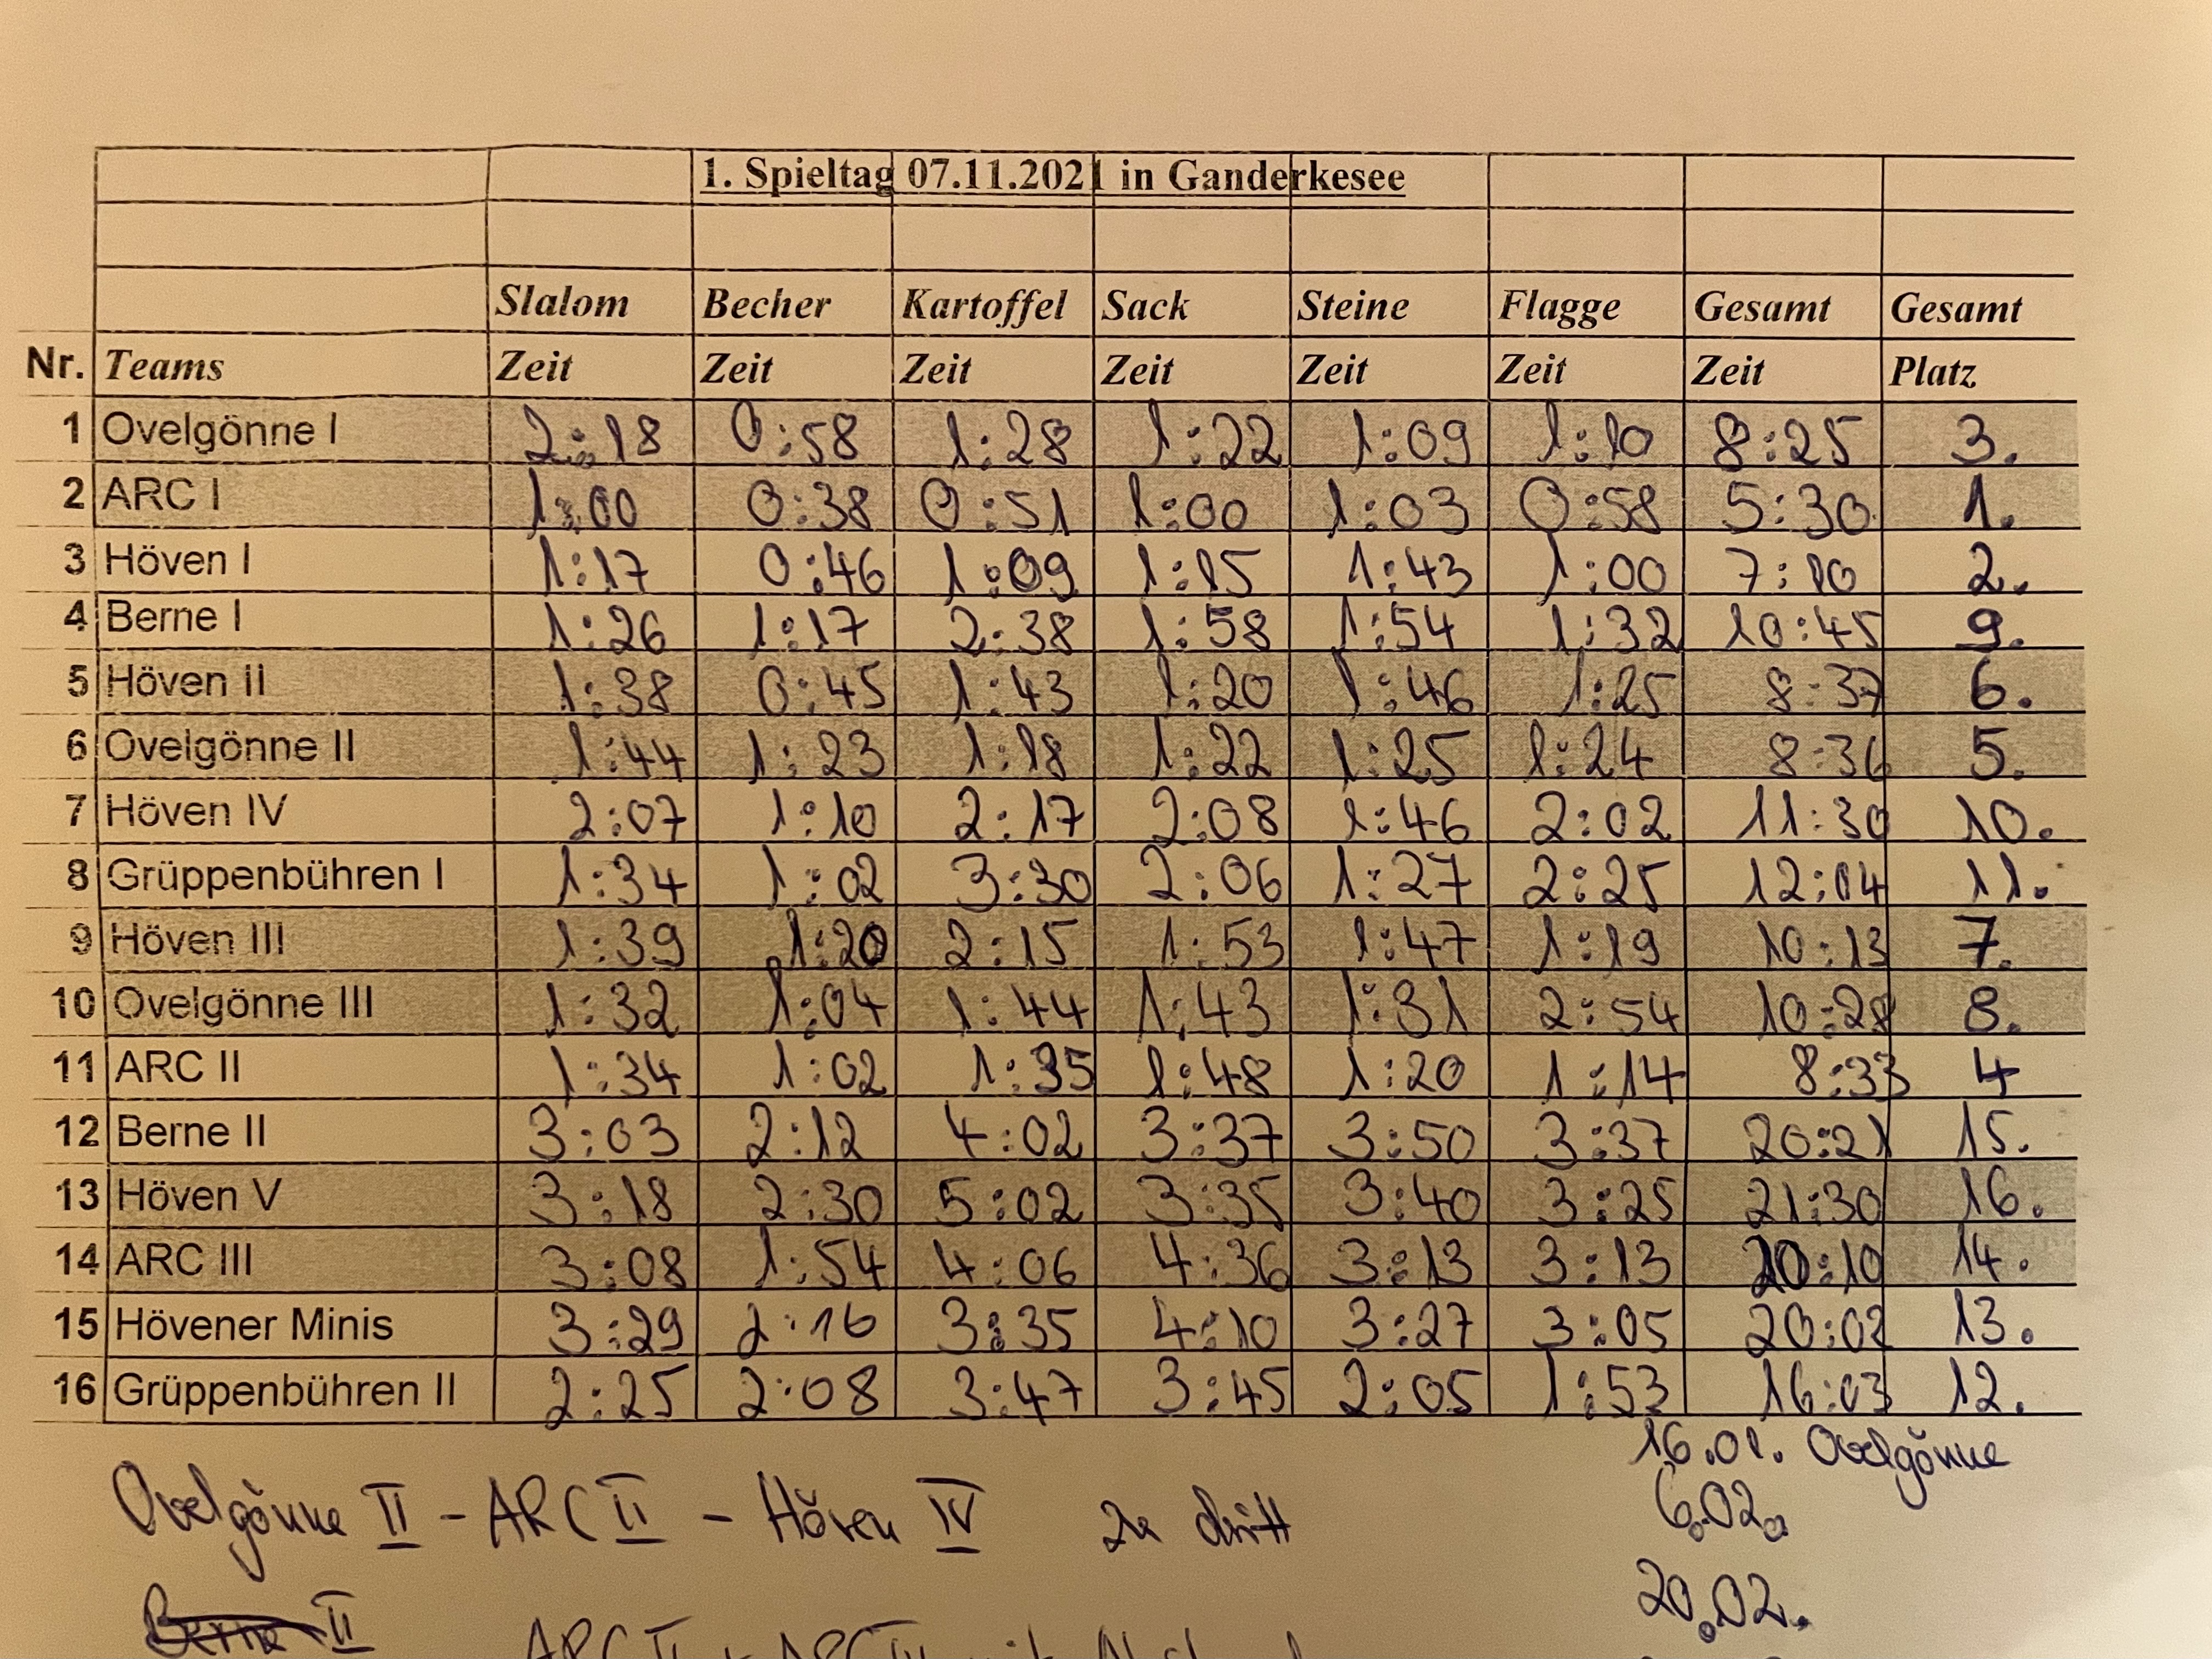 1. Spieltag 07.11.2021 in Ganderkesee
Slalom Becher Kartoffel Sack Steine Flagge Gesamt Gesamt
Nr. Teams Zeit Zeit Zeit Zeit Zeit Zeit Zeit Platz
1 Ovelgönne I 2:18 0:58 1:28 1:22 1:09 1:10 8:25 3.
2 ARC I 1:00 0:38 0:51 1:00 1:03 0:58 5:30 1.
3 Höven I 1:17 0:46 1:09 1:15 1:43 1:00 7:10 2.
4 Berne I 1:26 1:17 2:38 1:58 1:54 1:32 10:45 9.
5 Höven II 1:38 0:45 1:43 1:20 1:46 1:25 8:37 6.
6 Ovelgönne II 1:44 1:23 1:18 1:22 1:25 1:24 8:36 5.
7 Höven IV 2:07 1:10 2:17 2:08 1:46 2:02 11:30 10.
8 Grüppenbühren I 1:34 1:02 3:30 2:06 1:27 2:25 12:04 11.
9 Höven III 1:39 1:20 2:15 1:53 1:47 1:19 10:13 7.
10 Ovelgönne III 1:32 1:04 1:44 1:43 1:31 2:54 10:28 8.
11 ARC II 1:34 1:02 1:35 1:48 1:20 1:14 8:33 4
12 Berne II 3:03 2:12 4:02 3:37 3:50 3:37 20:21 15.
13 Höven V 3:18 2:30 5:02 3:35 3:40 3:25 21:30 16.
14 ARC III 3:08 1:54 4:06 4:36 3:13 3:13 20:10 14.
15 Hövener Minis 3:29 2:16 3:35 4:10 3:27 3:05 20:02 13.
16 Grüppenbühren II 2:25 2:08 3:47 3:45 2:05 1:53 16:03 12.
16.01. Ovelgönne
Ovelgönne II - ARC II - Höven IV zu dritt
6.02.
20.02.
Berne II